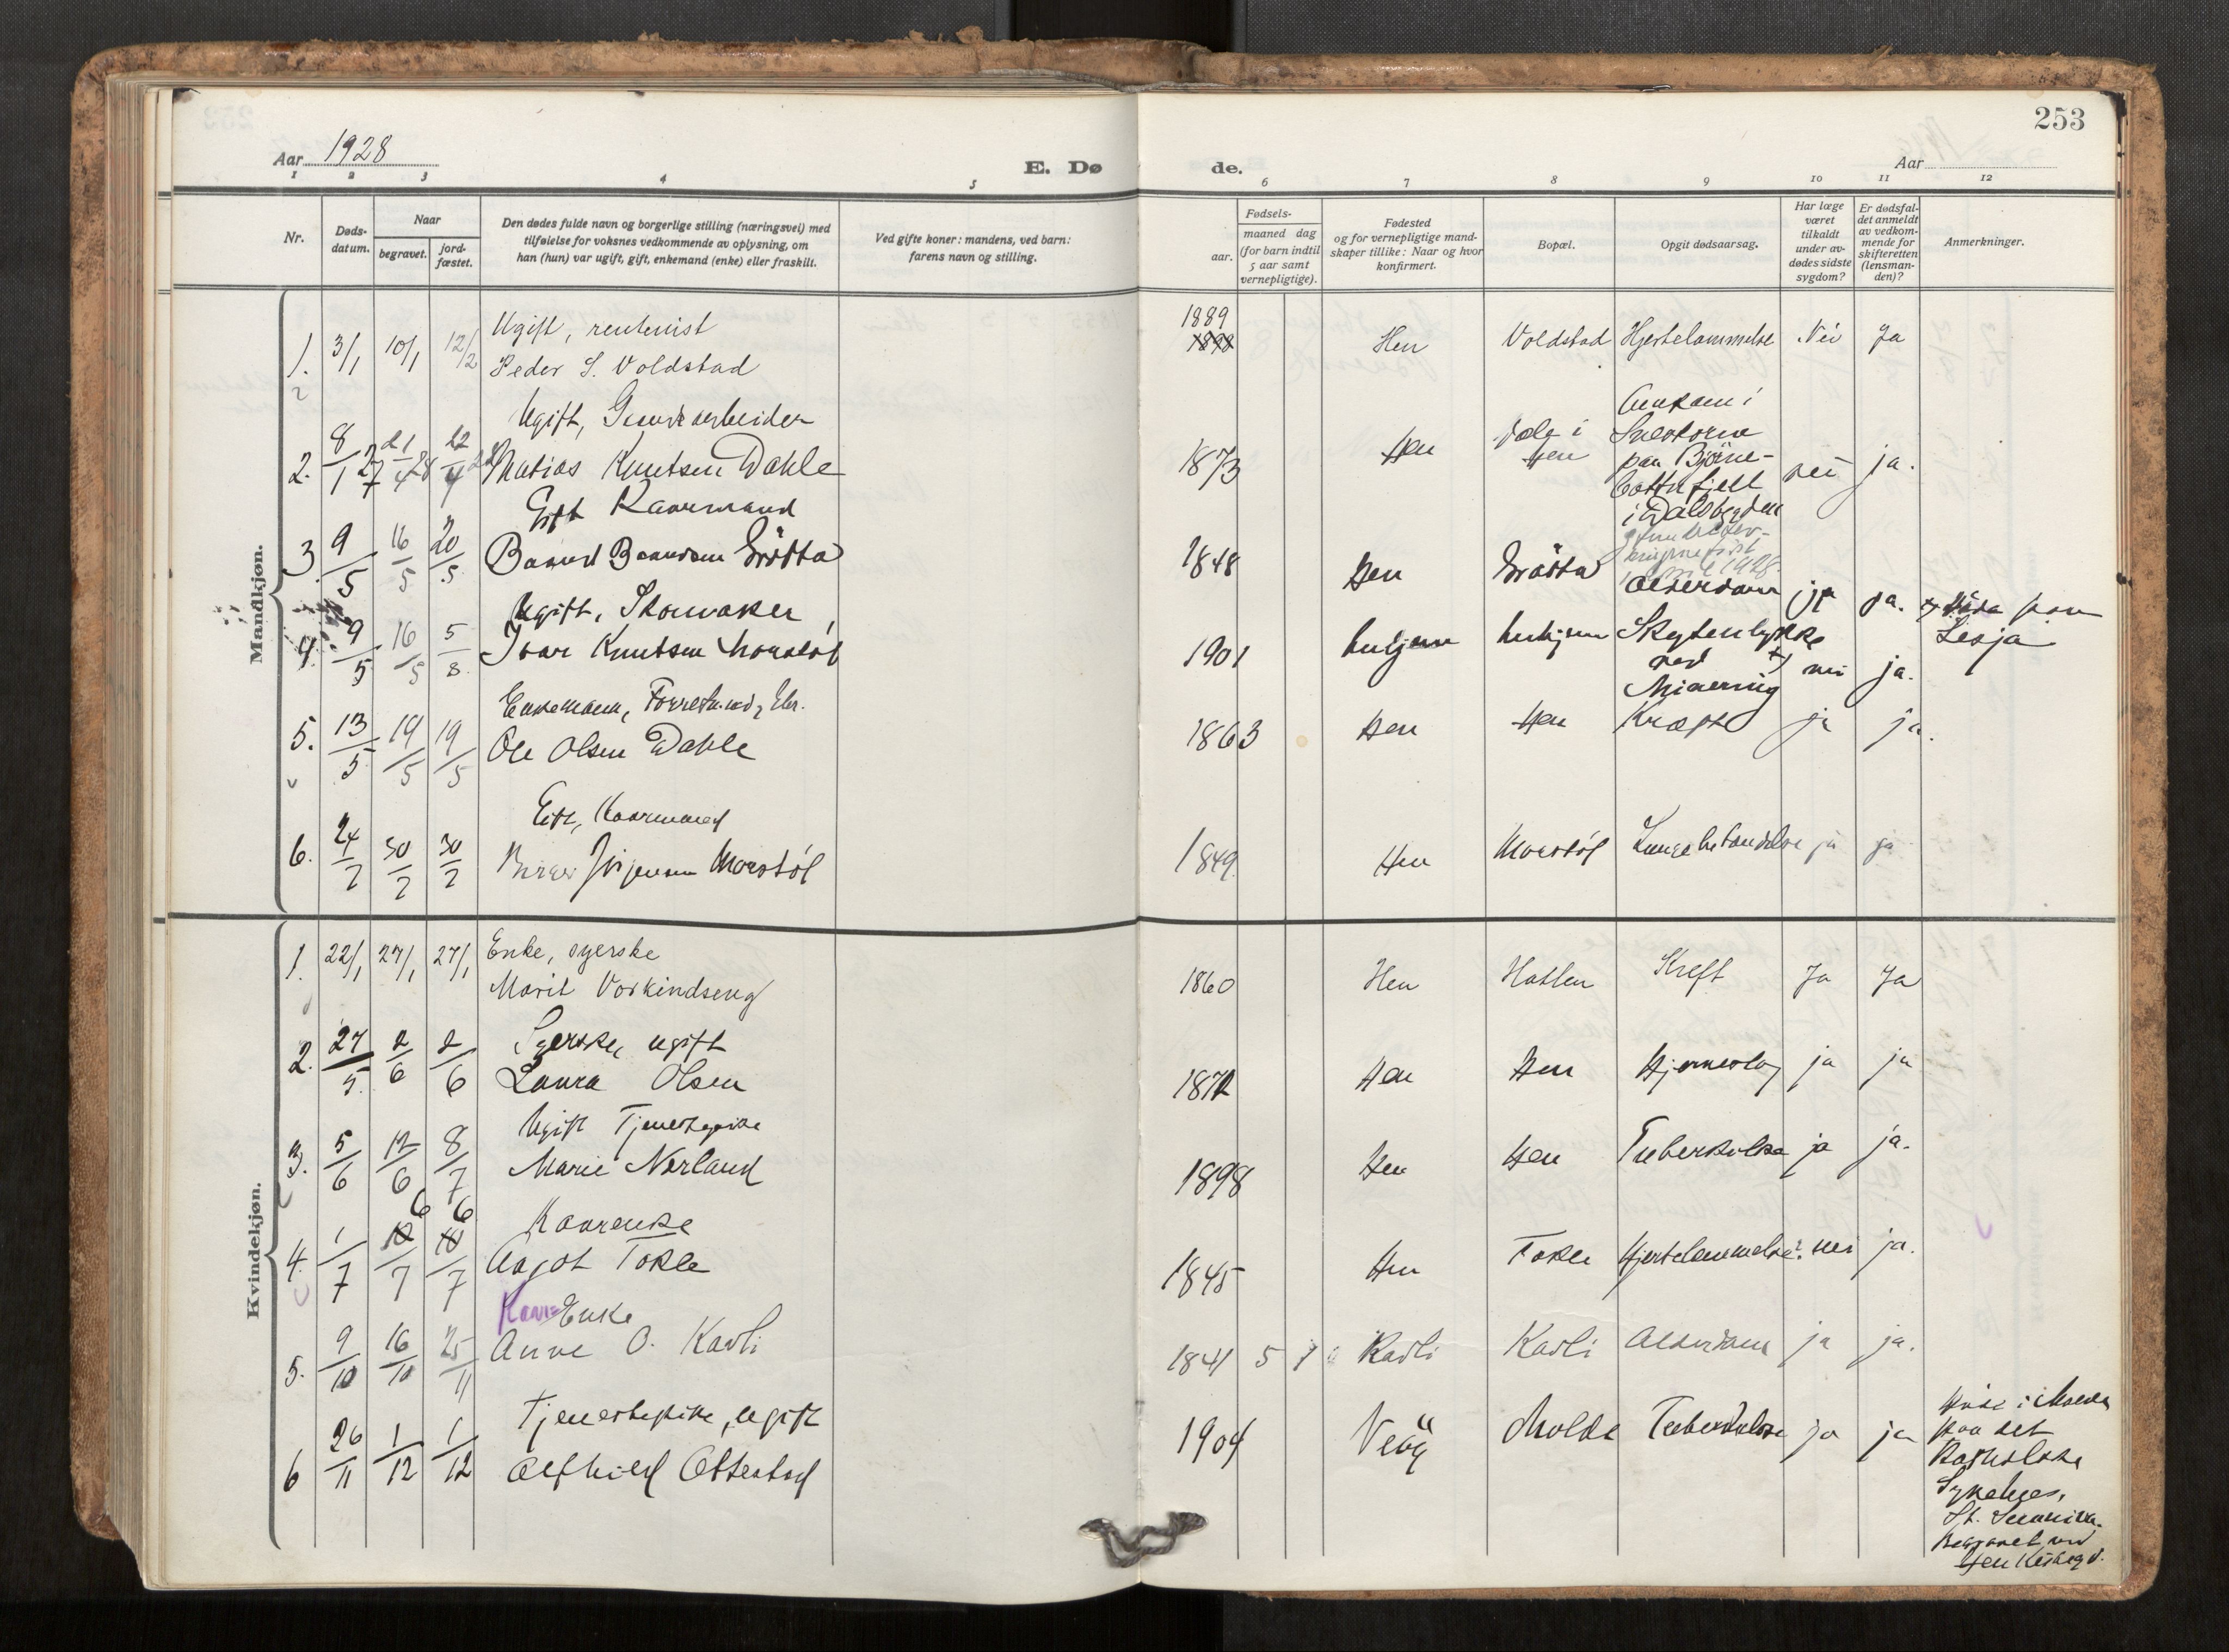 253
Aar 1928
E. Døde.
Aar
1 2 3 4 5 6 7 8 9 10 11 12
Nr.
Døds-datum.
Naar
begravet.
jord-fæstet.
Den dødes fulde navn og borgerlige stilling (næringsvei) med
tilføielse for voksnes vedkommende av oplysning, om
han (hun) var ugift, gift, enkemand (enke) eller fraskilt.
Ved gifte koner: mandens, ved barn:
farens navn og stilling.
Fødsels-
aar.
maaned dag
(for barn indtil
5 aar samt
vernepligtige).
Fødested
og for vernepligtige mand-
skaper tillike: Naar og hvor
konfirmert.
Bopæl.
Opgit dødsaarsag.
Har læge
været
tilkaldt
under av-
dødes sidste
sygdom?
Er dødsfal-
det anmeldt
av vedkom-
mende for
skifteretten
(lensman-
den)?
Anmerkninger.
Mandkjøn.
Ugift, rentenist
1. 3/1 10/1 12/2 Peder S. Voldstad 1889 1898 Hen Voldstad Hjertelammelse Nei Ja
Ugift, Grundarbeider
2. 8/1 27 21/4 28 22/4 28 Matias Knutsen Dahle 1873 Hen Dalg i Hen Omkom i
Snestorm
paa Bjørne-
botnfjell
i Dalsbygden
nei ja.
april 1928.
Gift Kaarmand
3. 9/5 16/5 20/5 Baard Baardsen Grøtta 1848 Hen Grøtta Alderdom ja ja.
Ugift, Skomaker
4. 9/5 16/5 5/8 Ivar Knutsen Morstøl 1901 Innhjem Skytenlykke
ved +)
Minering
nei ja. +) Døde paa
Lesja
Enkemann, Forretn.
5. 13/5 19/5 19/5 Ole Olsen Dahle 1863 Hen Hen Kræft ja ja.
Gift, Kaarmand
6. 24/7 30/7 30/7 Birger Jørgensen Morstøl 1849 Hen Morstøl Lungebetændelse ja ja
Kvindekjøn.
Enke, syerske
1. 22/1 27/1 27/1 Marit Vorkindseng 1860 Hen Hatlen Kreft Ja Ja
Syerske, ugift
2. 27/5 2/6 2/6 Laura Olsen 1872 Hen Hen Hjerneslag ja ja
Ugift Tjenestepike
3. 5/6 12/6 8/7 Marie Norland 1898 Hen Hen Tuberkulose ja ja.
Kaarenke
4. 1/7 6/7 6/7 Aagot Tokle 1845 Hen Tokle Hjertelammelse? nei ja.
Kaar Enke
5. 9/10 16/10 25/11 Anne O. Kavli 1841 5 7 Kavli Kavli Alderdom ja ja.
Tjenestepike, ugift
6 26/11 1/12 1/12 Alfhild Otterstad 1904 Veøy Molde Tuberkulose ja ja Døde i Molde
paa det
Katholske
Sykehus,
St. Sunniva.
Begravet ved
Hen Kirkegd.